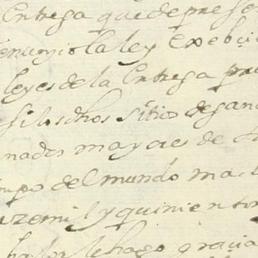 Entrega que de prese
renunzio la ley exebcio
leyes de la Entrega pru
si los dhos sitio de gana
nados mayores de
mpo del mundo mas
y quinientos
hago gracia